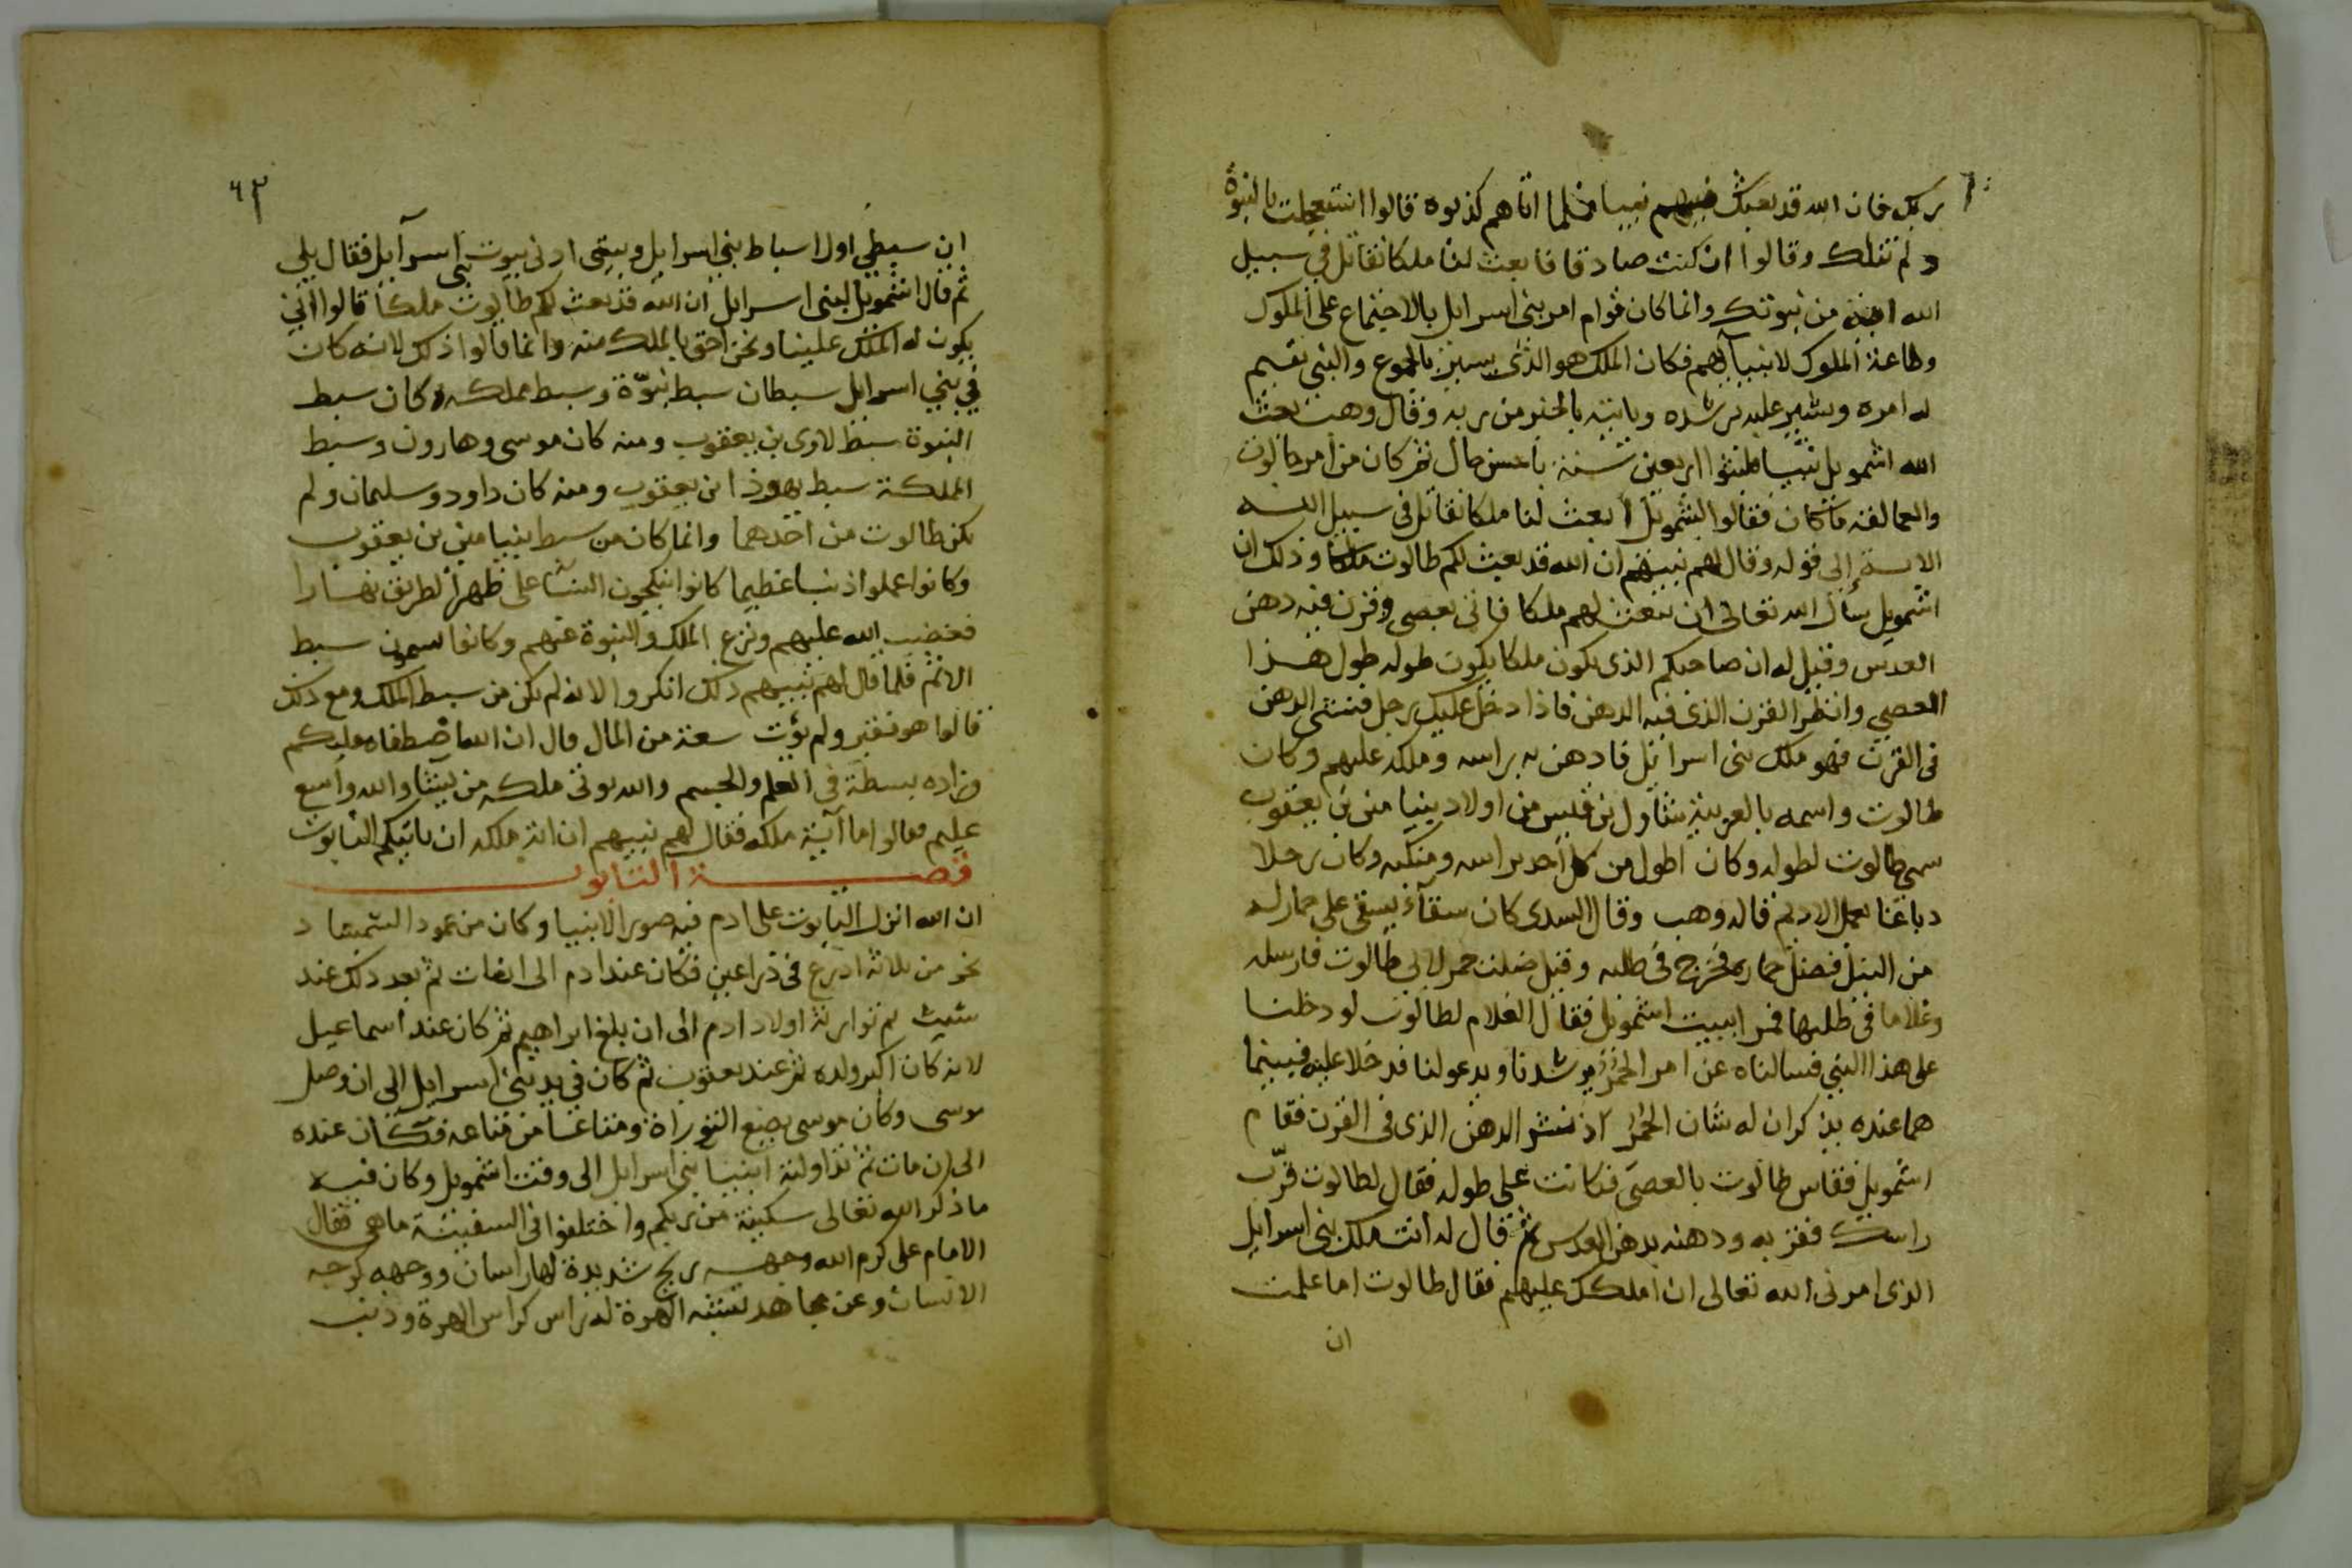 ربك فان الله قد بعثك فيهم نبيا فلما اتاهم كذبوه قالوا استعجلت بالنبوة
ولم تنلك وقالوا ان كنت صادقا فابعث لنا ملكا نقاتل في سبيل
الله اية من نبوتك وانما كان قوام امر بني اسرايل بالاجتماع على الملوك
وطاعة الملوك لانبيآيهم فكان الملك هو الذى يسير بالجموع والنبي يقيم
له امره ويشير عليه برشده وياتيه بالخبر من ربه وقال وهب بعث
الله اشمويل نبيا فلبثوا اربعين سنة باحسن حال ثم كان من امر جالوت
والعمالقة ما كان فقالوا لاشمويل ابعث لنا ملكا نقاتل في سبيل الله
الاية إلى قوله وقال لهم نبيهم ان الله قد بعث لكم طالوت ملكا وذلك ان
اشمويل سال الله تعالى ان يبعث لهم ملكا فاتى بعصى وقرن فيه دهن
القدس وقيل له ان صاحبكم الذى يكون ملكا يكون طوله طول هذا
العصى وانظر القرن الذى فيه الدهن فاذا دخل عليك رجل فنشى الدهن
فى القرن فهو ملك بنى اسرائيل فادهن به براسه وملكه عليهم وكان
طالوت واسمه بالعربية شاول بن قيس من اولاد بنيامين بن يعقوب
سمي طالوت لطوله وكان اطول من كل احد براسه ومنكبه وكان رجلا
دباغا يعمل الاديم قاله وهب وقال السدى كان سقآء يسقى على حمار له
من النيل فضل حماره فخرج فى طلبه وقيل ضلت حمر لابي طالوت فارسله
وغلاما فى طلبها فمرا ببيت اشمويل فقال الغلام لطالوت لو دخلنا
على هذا النبي فسالناه عن امر الحمر يرشدنا ويدعو لنا فدخلا عليه فبينما
هما عنده يذكران له شان الحمر اذ نشر الدهن الذى فى القرن فقام
اشمويل فقاس طالوت بالعصى فكانت على طوله فقال لطالوت قرّب
راسك فقربه ودهنه بدهن القدس ثم قال له انت ملك بنى اسرايل
الذى امرنى الله تعالى ان املكك عليهم فقال طالوت اما علمت
ان
٦٣
ان سبطى اول اسباط بني اسرايل وبيتى ادنى بيوت بنى اسرآيل فقال بلى
ثم قال اشمويل لبنى اسرايل ان الله قد بعث لكم طالوت ملكا قالوا انى
يكون له الملك علينا ونحن احق بالملك منه وانما قالوا ذلك لانه كان
في بني اسرايل سبطان سبط نبوّة وسبط مملكه وكان سبط
النبوة سبط لاوى بن يعقوب ومنه كان موسى وهارون وسبط
المملكة سبط يهوذا بن يعقوب ومنه كان داود وسليمان ولم
يكن طالوت من احدهما وانما كان من سبط بنيامين بن يعقوب
وكانوا عملوا ذنبا عظيما كانوا ينكحون النسا على ظهر الطريق نهارا
فغضب الله عليهم ونزع الملك والنبوة عنهم وكانوا يسمون سبط
الاثم فلما قال لهم نبيهم ذلك انكروا لانه لم يكن من سبط الملك ومع ذلك
قالوا هو فقير ولم يؤت سعة من المال قال ان الله اصطفاه عليكم
وزاده بسطة فى العلم والجسم والله يوتى ملكه من يشا والله واسع
عليم فقالوا ما آية ملكه فقال لهم نبيهم ان اية ملكه ان ياتيكم التابوت
قصة التابوت
ان الله انزل التابوت على ادم فيه صور الانبيا وكان من عود الشمشاد
نحو من ثلاثة اذرع فى ذراعين فكان عند ادم الى ان مات ثم بعد ذلك عند
شيث ثم توارثه اولاد ادم الى ان بلغ ابراهيم ثم كان عند اسماعيل
لانه كان اكبر ولده ثم عند يعقوب ثم كان في يد بنى اسرايل الى ان وصل
موسى وكان موسى يضع التوراة ومتاعا من متاعه فكان عنده
الى ان مات ثم تداولته انبيا بنى اسرايل الى وقت اشمويل وكان فيه
ما ذكر الله تعالى سكينة من ربكم واختلفوا فى السفينة ما هي فقال
الامام على كرم الله وجهه ريح شديدة لها راسان ووجهه كوجه
الانسان وعن مجاهد تشبه الهرة له راس كراس الهرة وذنب